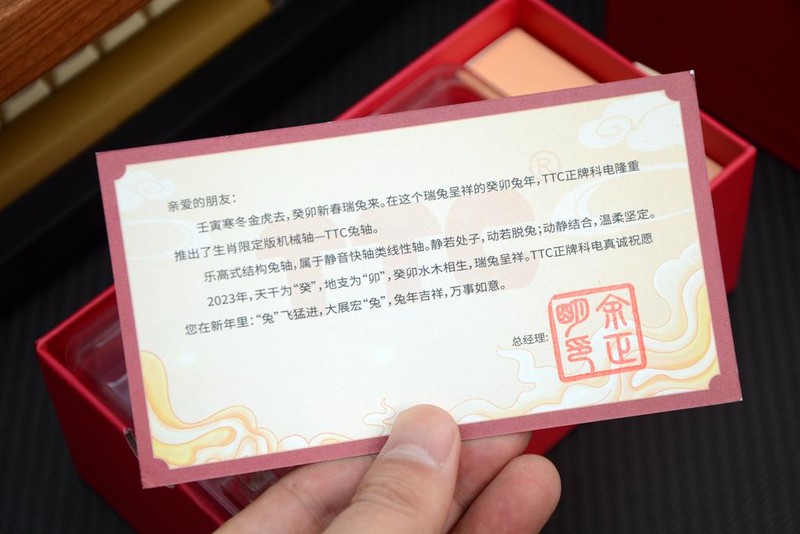 亲爱的朋友：
壬寅寒冬金虎去，癸卯新春瑞兔来。在这个瑞兔呈祥的癸卯兔年，TTC正牌科电隆重
推出了生肖限定版机械轴—TTC兔轴。
乐高式结构兔轴，属于静音快轴类线性轴。静若处子，动若脱兔；动静结合，温柔坚定。
2023年，天干为“癸”，地支为“卯”，癸卯水木相生，瑞兔呈祥。TTC正牌科电真诚祝愿
您在新年里：“兔”飞猛进，大展宏“兔”，兔年吉祥，万事如意。
总经理：
余正明印
TTC
®